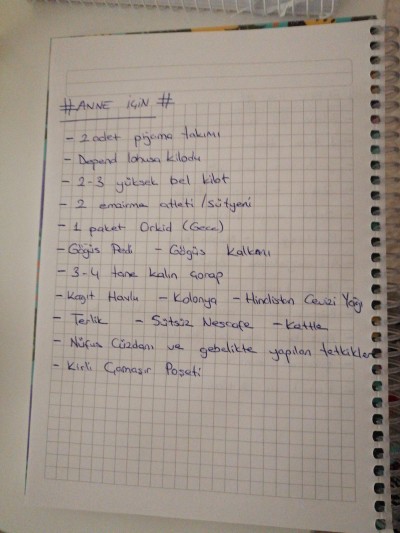 # ANNE İÇİN #
- 2 adet pijama takımı
- Depend lohusa kilodu
- 2-3 yüksek bel kilot
- 2 emzirme atleti / sütyeni
- 1 paket Orkid (Gece)
- Göğüs Pedi - Göğüs kalkanı
- 3-4 tane kalın çorap
- Kağıt Havlu - Kolonya - Hindistan Cevizi Yağı
- Terlik - Sütsüz Nescafe - Kettle
- Nüfus Cüzdanı ve gebelikte yapılan tetkikler
- Kirli Çamaşır Poşeti